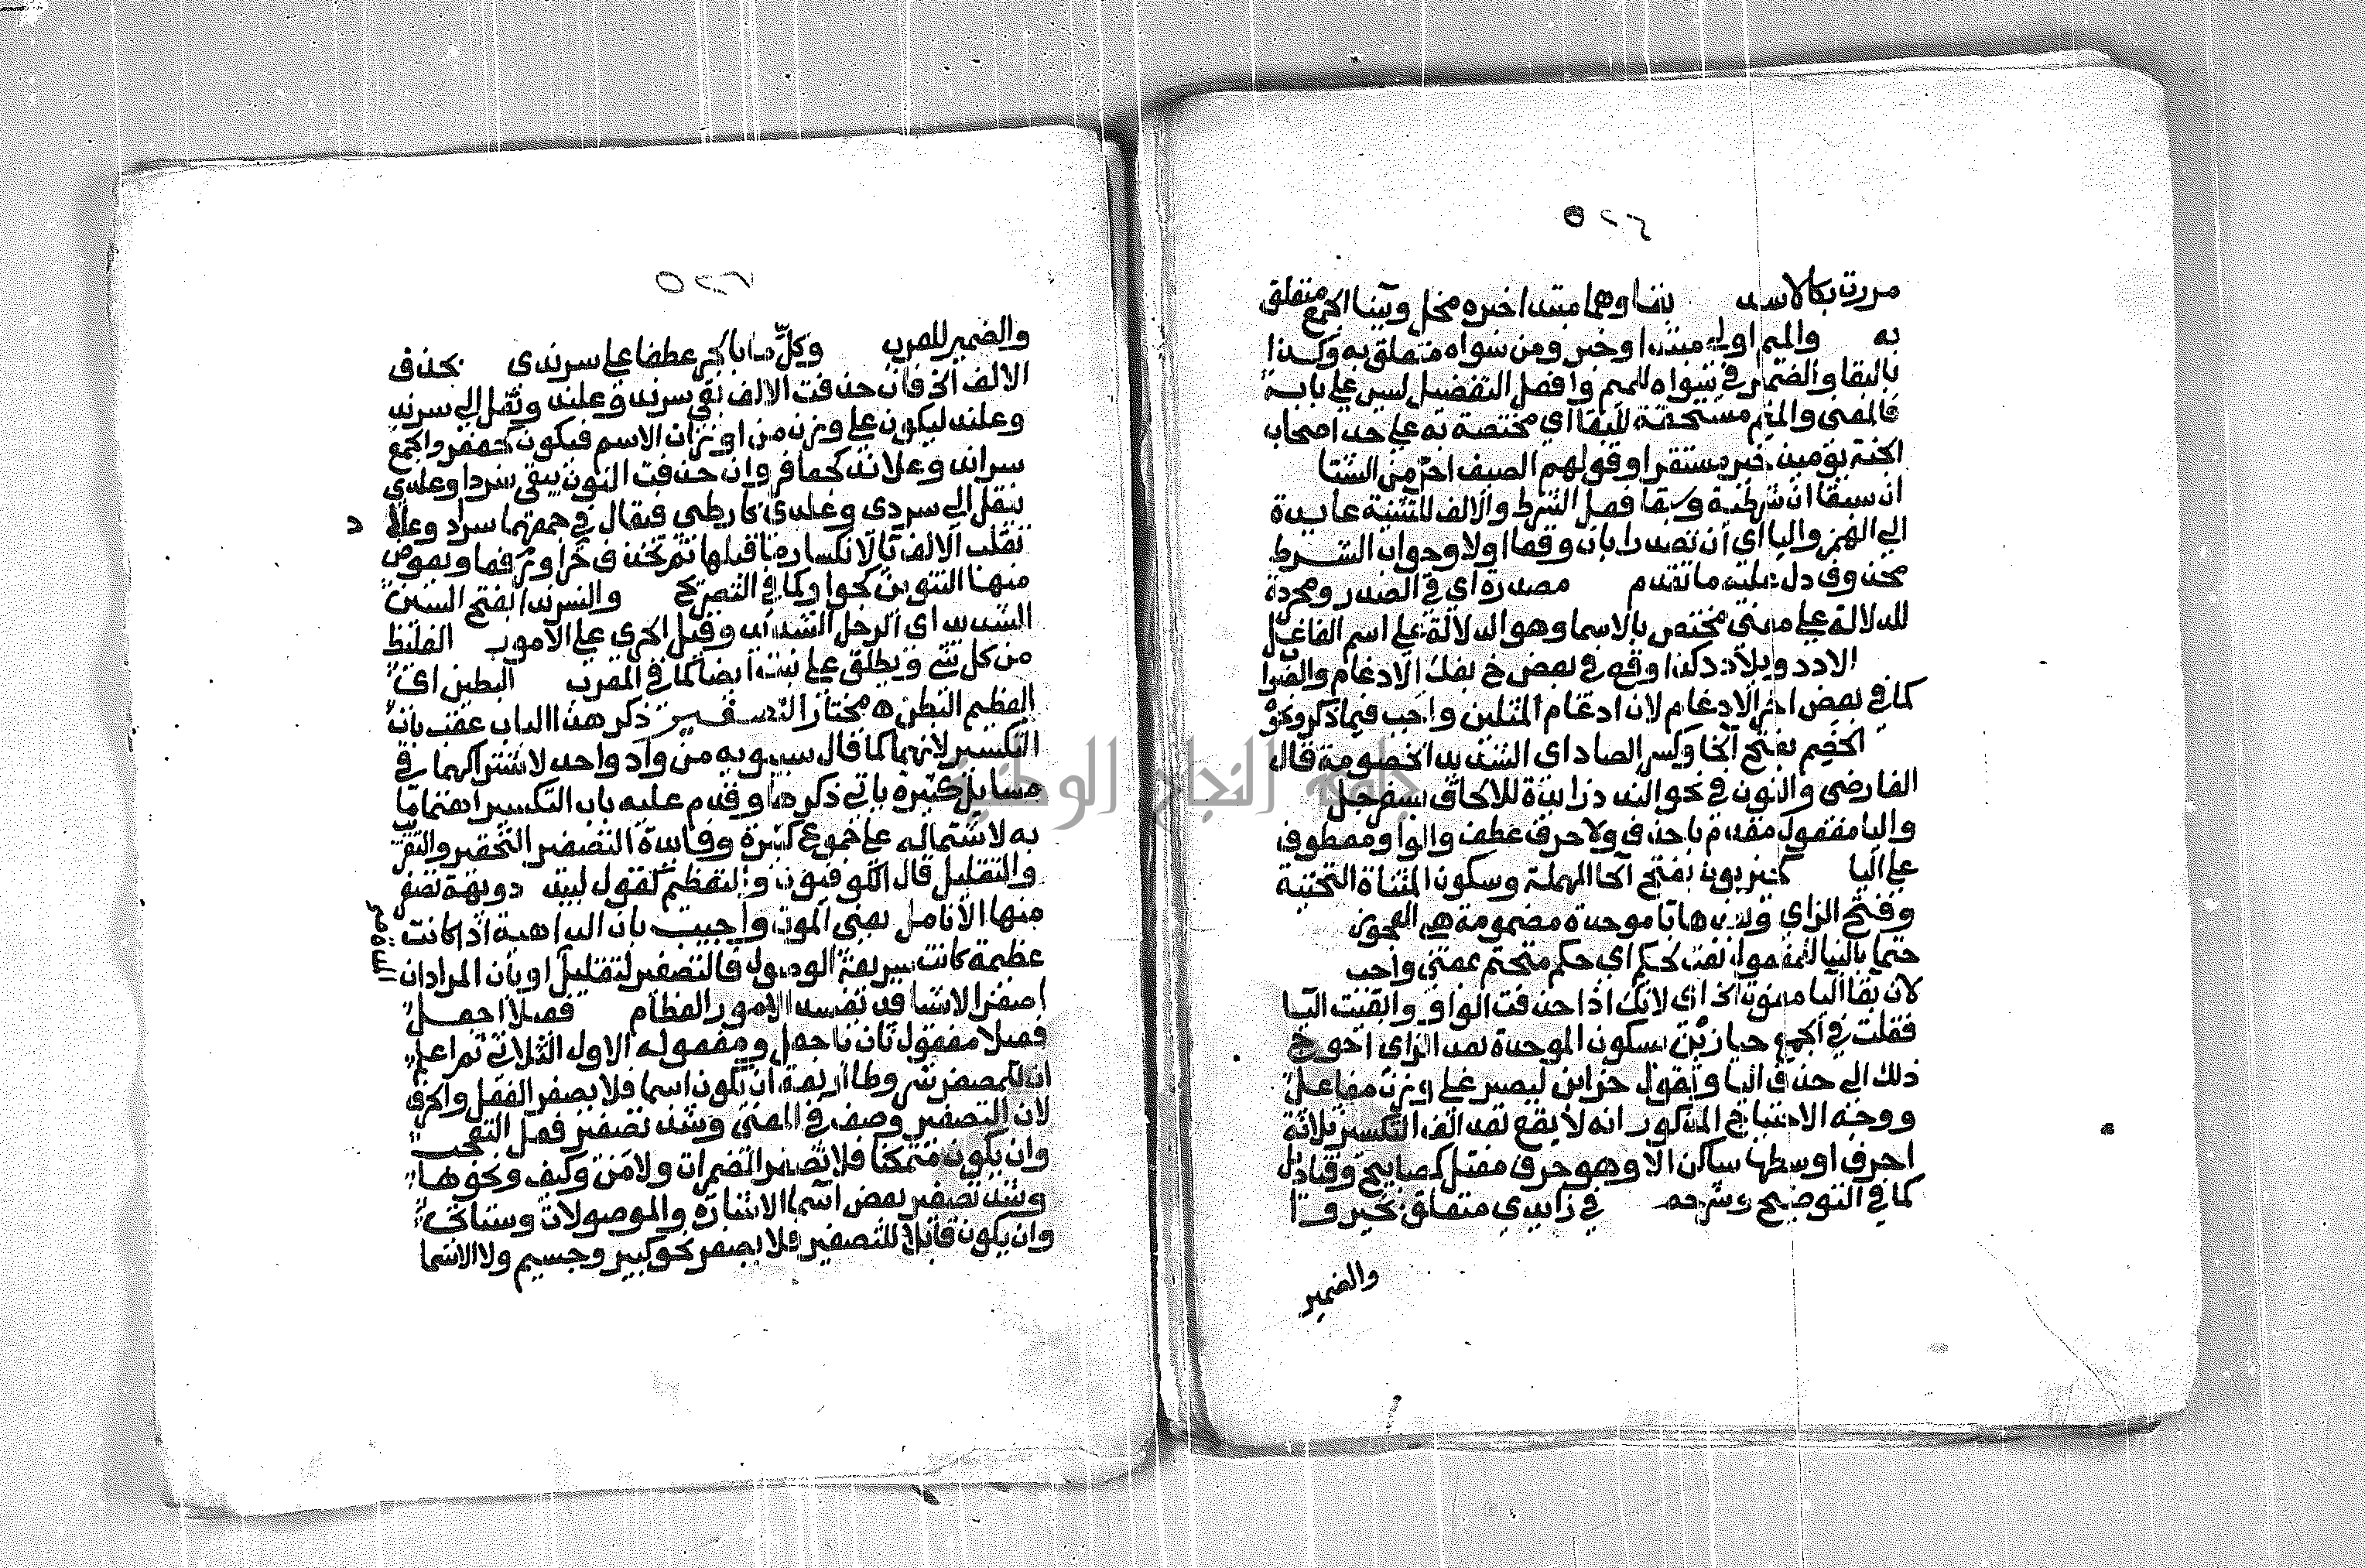 ٥٢٦
مررت بكالاسد بقا وهما مبتدا خبره مخل وبينا الجمع متعلق
به والميم اولي مبتدا وخبر ومن سواه متعلق به وكذا
بالبقا والضمير في سواه للميم وافعل التفضيل ليس على بابه
فالمعنى والميم مستحقة للبقا اي مختصة به على حد اصحاب
الجنة يوميذ خير مستقرا وقولهم الصيف احر من الشتا
ان سبقا ان شرطية وسبقا فعل الشرط والالف للتثنية عايدة
الي الهمز واليا اي ان تصدرا بان وقعا اولا وجواب الشرط
محذوف دل عليه ما تقدم مصدرة اي في الصدر ومجردة
للدلالة على معنى مختص بالاسما وهو الدلالة على اسم الفاعل
الادد ويلادد كذا وقع في بعض خ بفك الادغام والصرا
كما في بعض اخر الادغام لان ادغام المثلين واجب فيما ذكر ونحو
الخصم بفتح الخا وكسر الصاد اي الشديد الخصومة قال
الفارضى والنون في نحو النددزايدة للالحاق بسفرجل
واليا مفعول مقدم باحذف ولا حرف عطف والواو معطوف
على اليا كحيزبون بفتح الحا المهملة وسكون المثناة التحتية
وفتح الزاي وبعدها با موحدة مضمومة هي العجوز
حتما بالبنا للمفعول نعت لحكم اي حكم متحتم بمعنى واجب
لان بقا اليا مفوت الخ اي لانك اذا حذفت الواو وابقيت اليا
فقلت في الجمع حيازبن بسكون الموحدة بعد الزاي احوج
ذلك الي حذف اليا وتقول حزابن ليصير على وزن مفاعل
ووجه الاحتياج المذكور انه لا يقع بعد الف التكسير ثلاثة
احرف اوسطها ساكن الا وهو حرف معتل كمصابيح وقناديل
كما في التوضيح وشرحه في زايدي متعلق بخيروا
والضمير
٥٢٧
والضمير للعرب وكل ما بالجر عطفا على سرندى بحذف
الالف الخ فان حذفت الالف بقي سرند وعلند ونقل الي سرند
وعلند ليكون على وزن من اوزان الاسم فيكون كجعفر والجمع
سراند وعلاند كجعافر وان حذفت النون يبقى سردا وعلدي
نقل الي سردى وعلدى كارطى فيقال في جمعهما سراد وعلاد
تقلب الالف يا لانكسار ما قبلها ثم تحذف جرا ورفعا ويعوض
منها التنوين كجوار كما في التصريح والسرندا بفتح السين
الشديد اي الرجل الشديد وقيل الجري على الامور الغليظ
من كل شي ويطلق على نبت ايضا كما في المغرب البطين اي
العظيم البطن ه مختار التصغير ذكر هذا الباب عقب باب
التكسير لانهما كما قال سيبويه من واد واحد لاشتراكهما في
مسايل كثيرة ياتي ذكرها وقدم عليه باب التكسير اهتماما
به لاشتماله على جموع كثيرة وفايدة التصغير التحقير والتقريب
والتقليل قال الكوفيون والتعظيم كقول لبيد دويهة تصفر
منها الانامل يعني الموت واجيب بان الداهية اذا كانت
عظيمة كانت سريعة الوصول فالتصغير لتقليل او بان المراد ان
اصغر الاشيا قد تفسد الامور العظام فعيلا اجعل
فعيلا مفعول ثان باجعل ومفعوله الاول الثلاثي ثم اعلم
ان للمصغر شروطا اربعة ان يكون اسما فلا يصغر الفعل والحرف
لان التصغير وصف في المعنى وشذ تصغير فعل التعجب
وان يكون متمكنا فلا تصغر المضمرات ولا من وكيف ونحوها
وشذ تصغير بعض اسما الاشارة والموصولات وستاتي
وان يكون قابلا للتصغير فلا يصغر نحو كبير وجسيم ولا الاسما
جامعة النجاح الوطنية